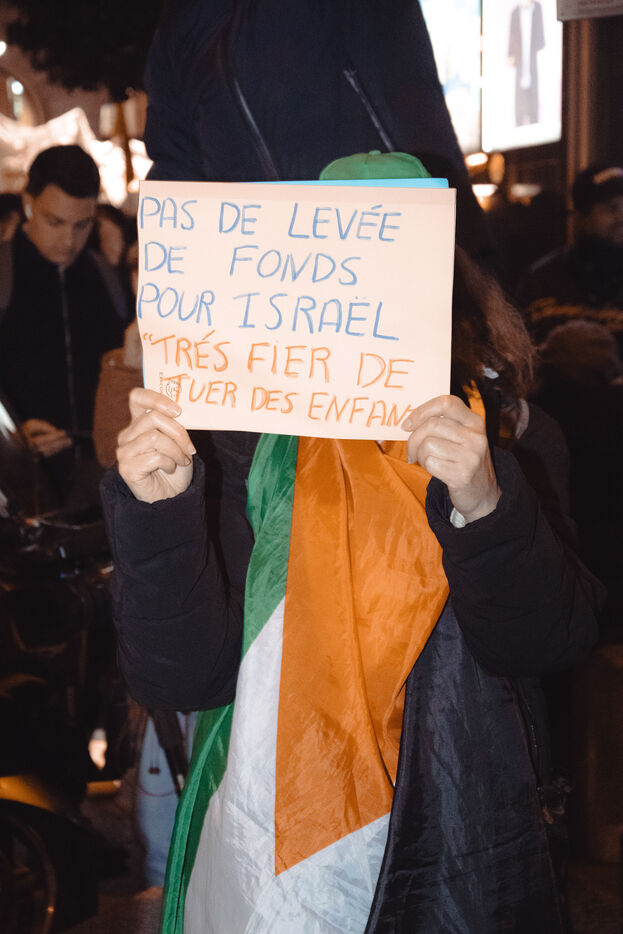 PAS DE LEVÉE
DE FONDS
POUR ISRAËL
"TRÉS FIER DE
TUER DES ENFAN